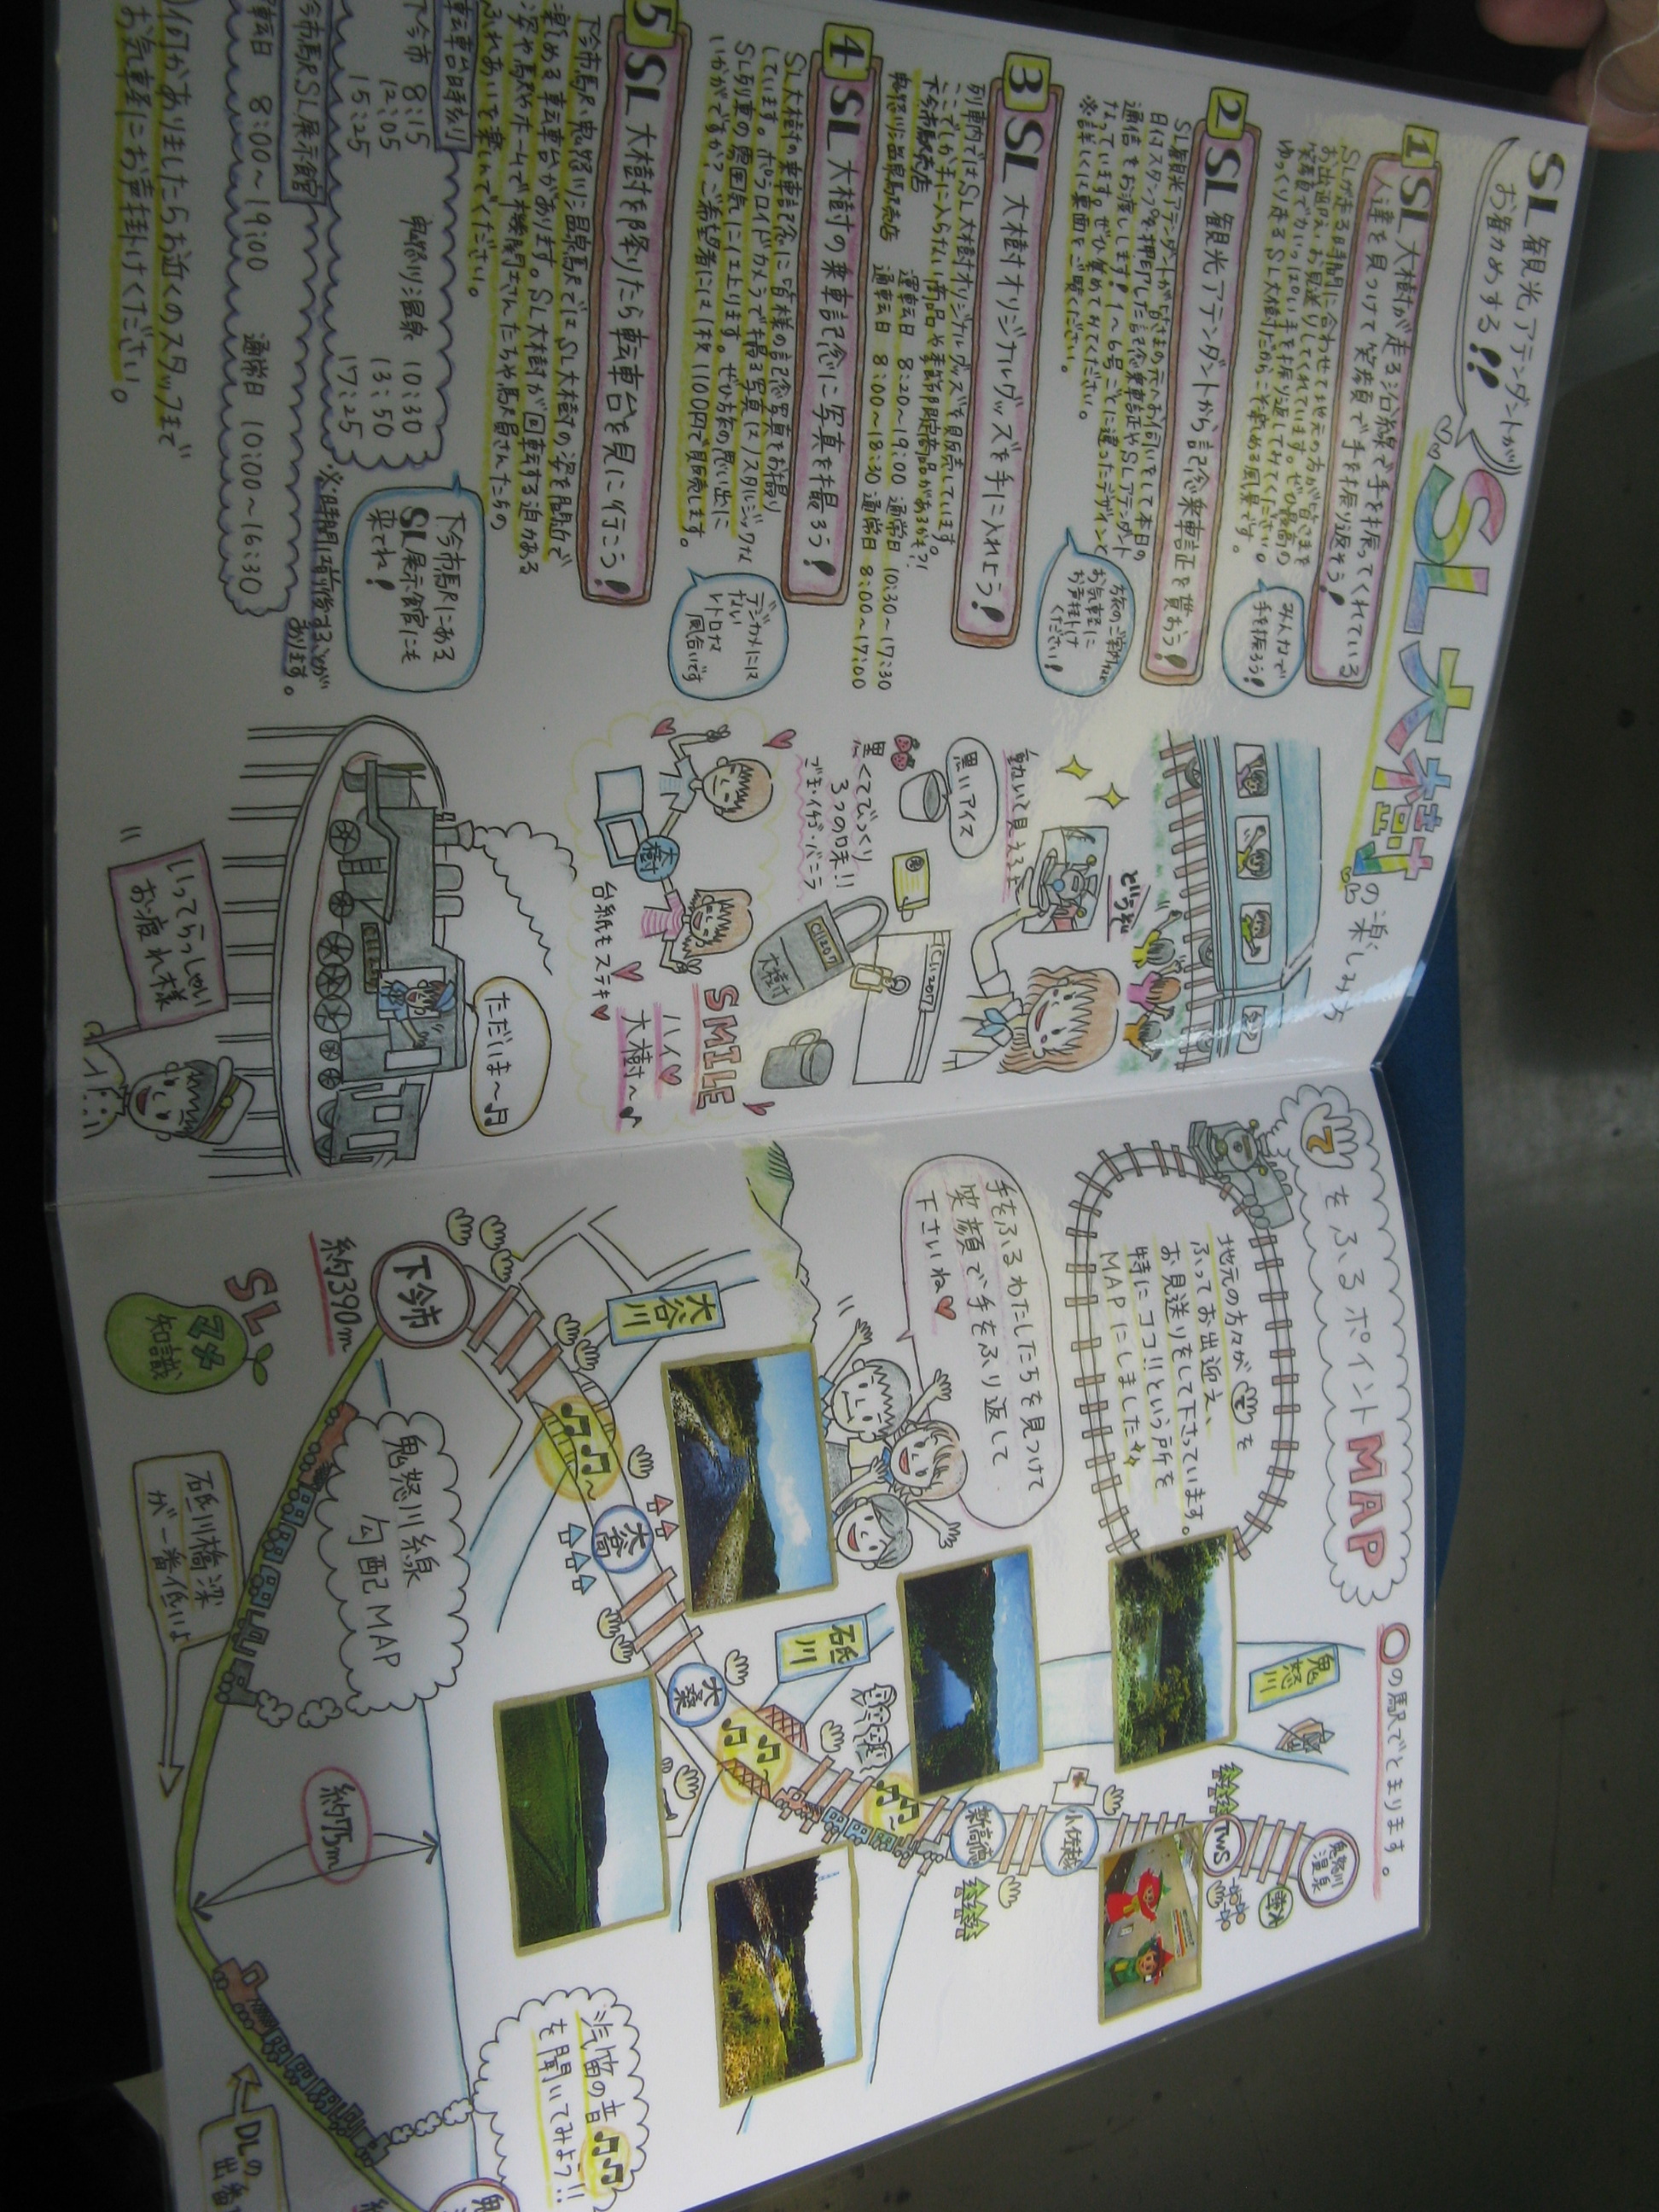 SL観光アテンダントが
お勧めする!!
SL大樹の楽しみ方
1 SL大樹が走る沿線で手を振ってくれている
人達を見つけて笑顔で手を振り返そう!
SLが走る時間に合わせて地元の方が皆さまを
お出迎え、お見送りしてくれています。ぜひ最高の
笑顔でかいっぱい手を振り返してみてください。
ゆっくり走るSL大樹だからこそ楽しめる風景です。
みんなで
手を振ろう!
2 SL観光アテンダントから記念乗車証を貰おう!
SL観光アテンダントが皆さまの元へお伺いをして本日の
日付スタンプを押印した記念乗車証やSLアテンダント
通信をお渡しします!1~6号ごとに違ったデザインと
なっています。ぜひ集めてみてください。
※詳しくは裏面をご覧ください。
旅のご案内など
お気軽に
お声掛け
ください!
どうぞ
動いて見える!
3 SL大樹オリジナルグッズを手に入れよう!
列車内ではSL大樹オリジナルグッズを販売しています。
ここでしか手に入らない商品や季節限定商品があるかも?!
下今市駅売店 運転日 8:20~19:00 通常日 10:30~17:30
鬼怒川温泉駅売店 運転日 8:00~18:30 通常日 8:00~17:00
黒いアイス
黒くてびっくり
3つの味!!
ごま・イチゴ・バニラ
C11207
大樹
C11207
4 SL大樹の乗車記念に写真を撮ろう!
SL大樹の乗車記念に皆様の記念写真をお撮り
しています。ポラロイドカメラで撮る写真はノスタルジックな
SL列車の雰囲気に仕上ります。ぜひ旅の思い出に
いかがですか?ご希望者には1枚1100円で販売します。
デジカメには
ない
レトロな
風合いです
SMILE
ハイ
大樹~♪
大樹
台紙もステキ
5 SL大樹を降りたら転車台を見に行こう!
下今市駅、鬼怒川温泉駅ではSL大樹の姿を間近で
楽しめる転車台があります。SL大樹が回転する迫力ある
姿や駅のホームで機関士さんたちや駅員さんたちの
ふれあいを楽しんでください。
転車台時刻
下今市 8:15
12:05
15:25
鬼怒川温泉 10:30
13:50
17:25
※時間は前後する事が
あります。
下今市駅にある
SL展示館にも
来てね!
今市駅SL展示館
転日 8:00~19:00 通常日 10:00~16:30
何かありましたらお近くのスタッフまで
お気軽にお声掛けください。
ただいま~♬
C11207
いってらっしゃい
お疲れ様
手をふるポイントMAP
○の駅でとまります。
地元の方々が手を
ふってお出迎え、
お見送りをして下さっています。
特にココ!!という所を
MAPにしました
手をふるわたしたちを見つけて
笑顔で手をふり返して
下さいね
鬼怒川
鬼怒川
温泉
TWS
小佐越
新高徳
砥川
大桑
大谷川
大谷向
下今市
汽笛の音
を聞いてみよう!!
鬼怒川線
勾配MAP
約390m
約75m
砥川橋梁
が一番低いよ
DLの
SL
マメ
知識